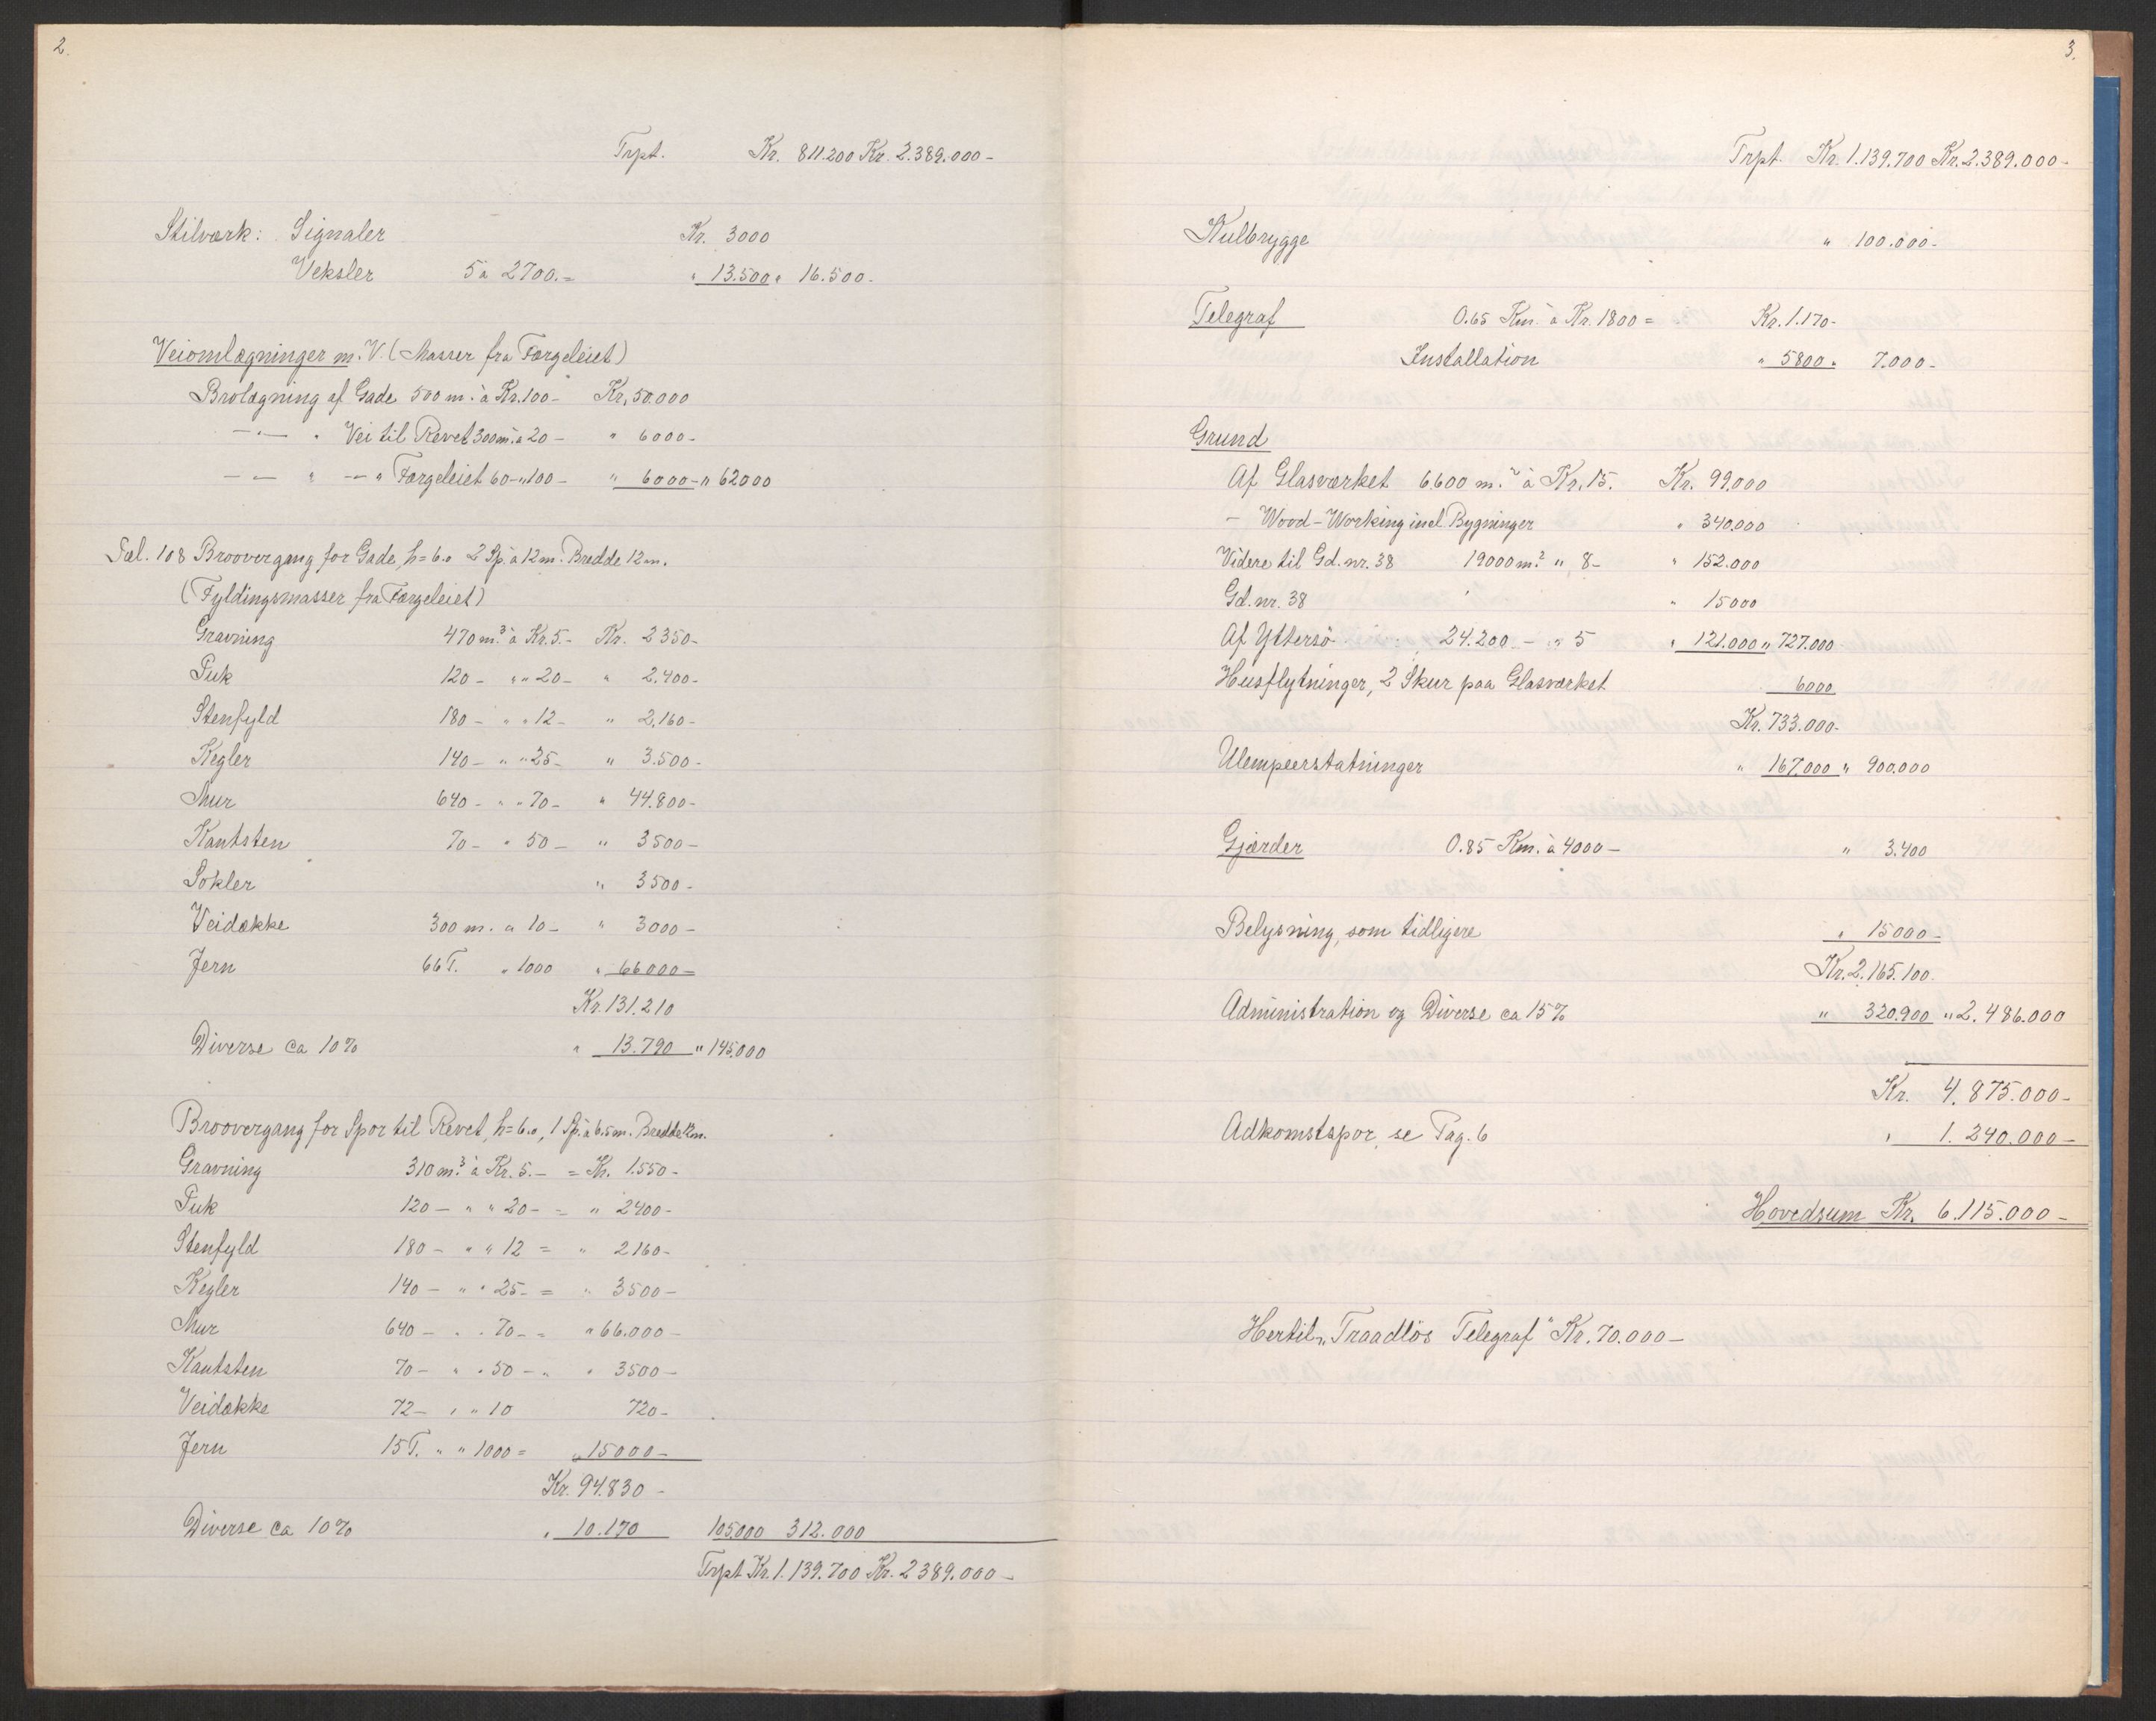 2.
Trpt. Kr. 811.200 Kr. 2.389.000 -
Stilværk: Signaler Kr. 3000
Veksler 5 à 2700.= " 13.500 " 16.500.-
Veiomlægninger m. V. (Masser fra Færgeleiet)
Brolægning af Gade 500 m. à Kr. 100 - Kr. 50.000
-"- " Vei til Revet 300 m. à 20 - " 6000 -
-"- " -"- " Færgeleiet 60 - " 100 - " 6000 - " 62000
Pæl. 108 Broovergang for Gade, h = 6.0 2 Sp. à 12 m. Bredde 12 m.
(Fyldingsmasser fra Færgeleiet)
Gravning 470 m.³ à Kr. 5.- Kr. 2350 -
Puk 120 - " " 20 - " 2.400 -
Stenfyld 180 - " " 12 - " 2.160 -
Kegler 140 - " " 25 - " 3.500 -
Mur 640 - " " 70 - " 44.800 -
Kantsten 70 - " 50 - " 3500 -
Sokler " 3500 -
Veidække 300 m. à 10 - " 3000 -
Jern 66 T. " 1000 " 66000 =
Kr. 131.210
Diverse ca 10% " 13.790 " 145.000
Broovergang for Spor til Revet, h = 6.0, 1 Sp. à 6.5 m. Bredde 12 m.
Gravning 310 m.³ à Kr. 5.- = Kr. 1.550 -
Puk 120 - " " 20 - = " 2400 -
Stenfyld 180 - " " 12 = " 2160 -
Kegler 140 - " " 25 - = " 3500 -
Mur 640 - " " 70 - = " 66.000 -
Kantsten 70 - " " 50 - " " 3500 -
Veidække 72 - " " 10 720 -
Jern 15 T. " " 1000 = " 15000 -
Kr. 94.830 -
Diverse ca 10% " 10.170 105.000 312.000
Trpt Kr. 1.139.700 Kr. 2389.000 -
3.
Trpt. Kr. 1.139.700 Kr. 2.389.000 -
Kulbrygge " 100.000 -
Telegraf 0.65 Km. à Kr. 1800 = Kr. 1.170 -
Installation " 5800 " 7.000 -
Grund
Af Glasværket 6.600 m.² à Kr. 15. Kr. 99.000
- Wood-Working incl. Bygninger " 340.000
Videre til Gd. nr. 38 19000 m.² " 8 - " 152.000
Gd. nr. 38 " 15000
Af Yttersö 24.200 - " 5 " 121.000 " 727.000
Husflytninger, 2 Skur paa Glasværket 6000
Kr. 733.000 -
Ulempeerstatninger " 167.000 " 900.000
Gjærder 0.85 Km. à 4000 - " 3.400
Belysning, som tidligere " 15000 -
Kr. 2.165.100
Administration og Diverse ca 15% " 320.900 " 2.486.000
Kr. 4.875.000 -
Adkomstspor, se Pag. 6 " 1.240.000 -
Hovedsum Kr. 6.115.000 -
Hertil „Traadlös Telegraf" Kr. 70.000 -